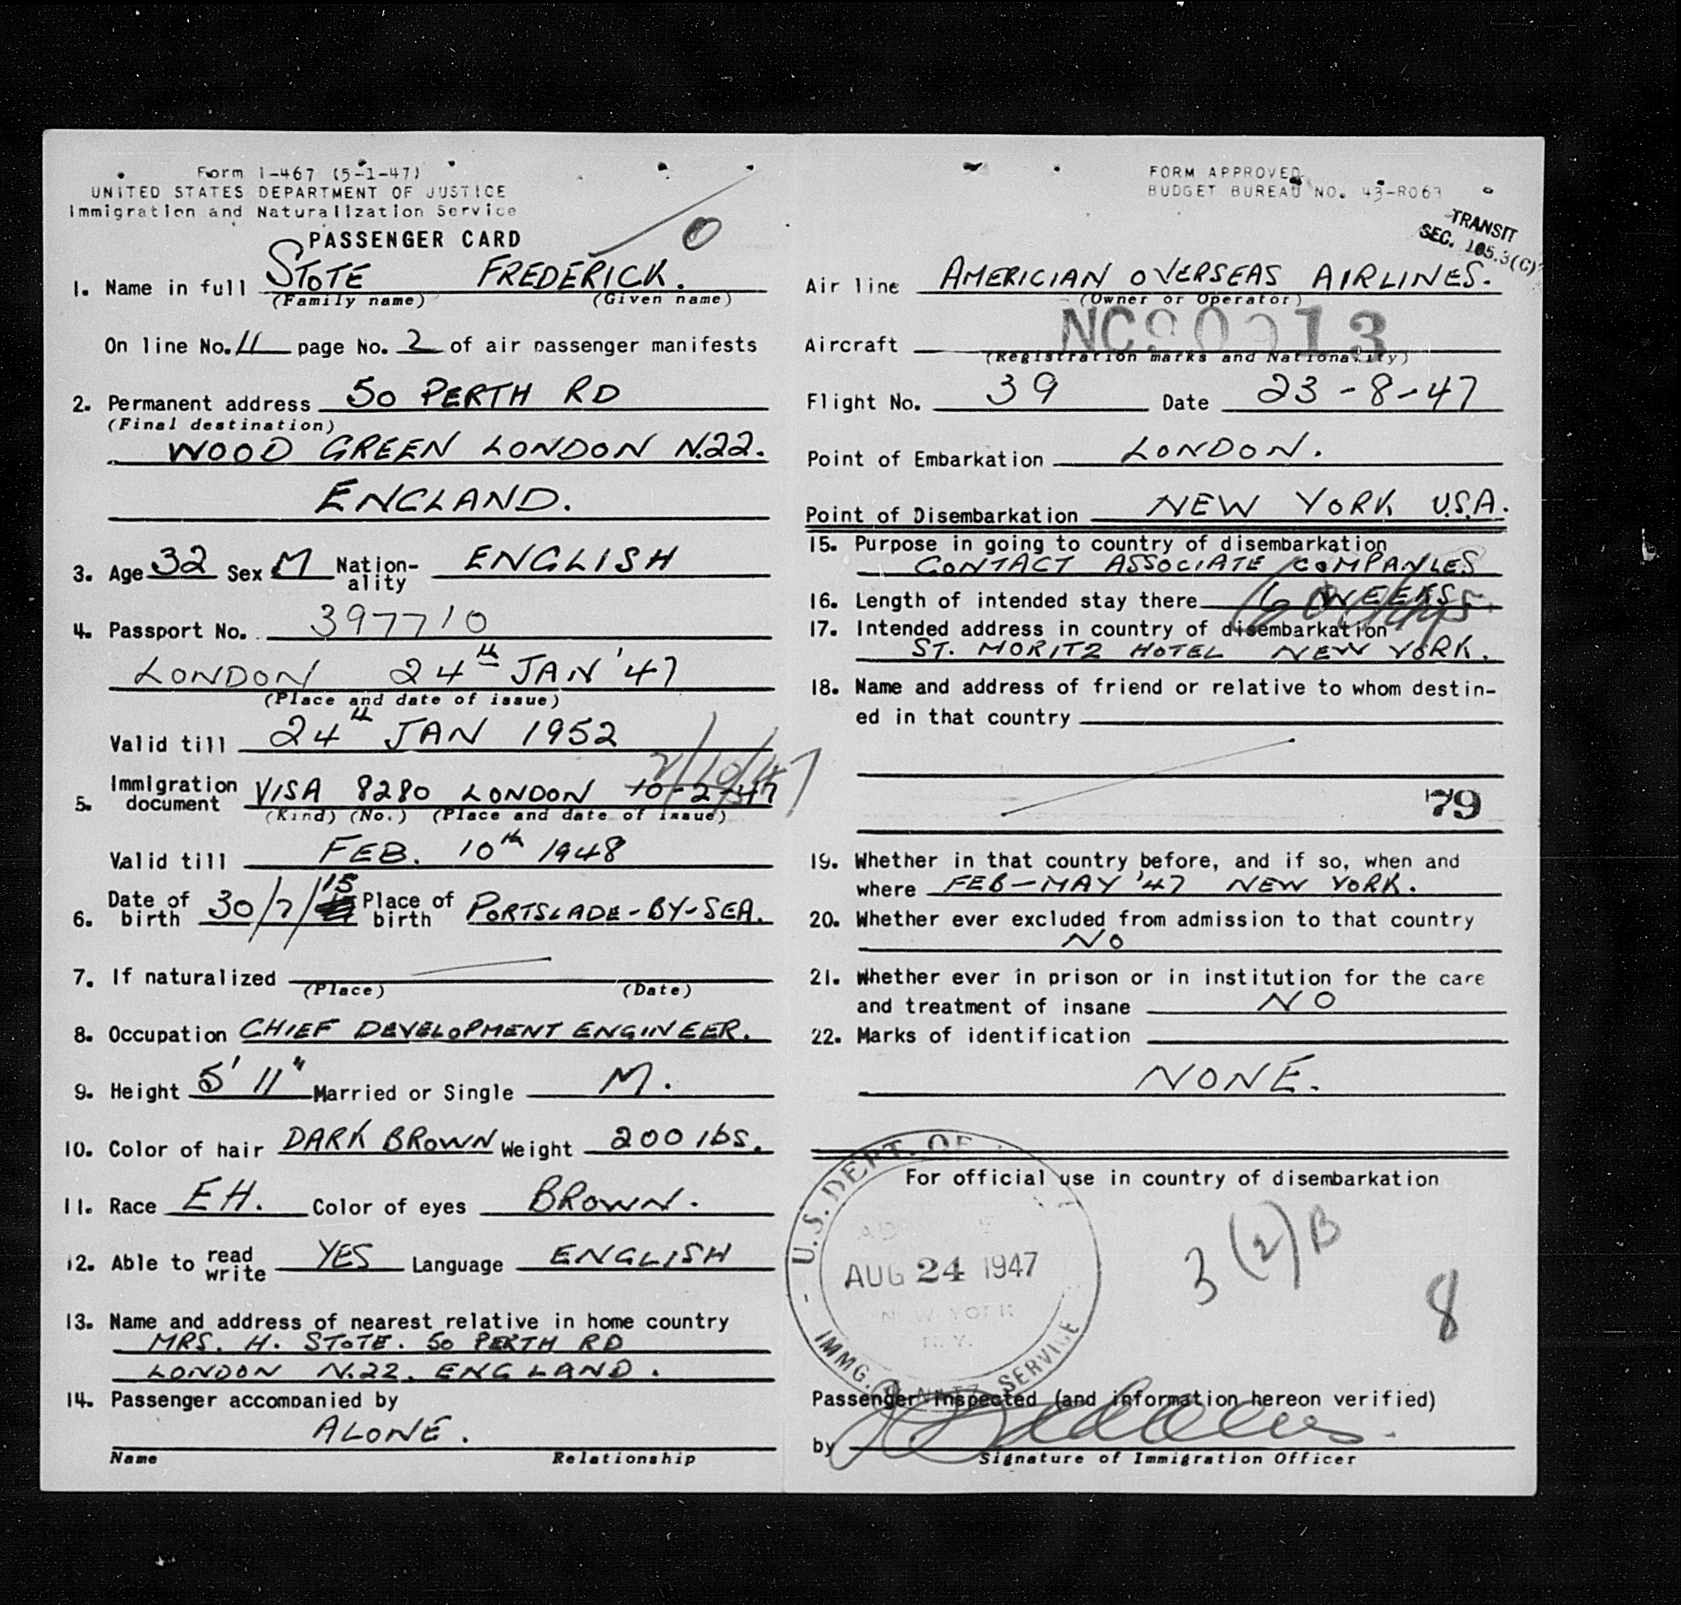 Form I-467 (5-1-47)
UNITED STATES DEPARTMENT OF JUSTICE
Immigration and Naturalization Service
PASSENGER CARD
0
1. Name in full STOTE FREDERICK.
(Family name) (Given name)
On line No. 11 page No. 2 of air passenger manifests
2. Permanent address 50 PERTH RD
(Final destination)
WOOD GREEN LONDON N.22.
ENGLAND.
3. Age 32 Sex M Nation-ality ENGLISH
4. Passport No. 397710
LONDON 24th JAN '47
(Place and date of issue)
Valid till 24th JAN 1952
2/10/47
5. Immigration document VISA 8280 LONDON 10-2-47
(Kind) (No.) (Place and date of issue)
Valid till FEB. 10th 1948
6. Date of birth 30/7/15 Place of birth PORTSLADE-BY-SEA.
7. If naturalized
(Place) (Date)
8. Occupation CHIEF DEVELOPMENT ENGINEER.
9. Height 5' 11" Married or Single M.
10. Color of hair DARK BROWN Weight 200 lbs.
11. Race EH. Color of eyes BROWN.
12. Able to read write YES Language ENGLISH
13. Name and address of nearest relative in home country
MRS. H. STOTE. 50 PERTH RD
LONDON N.22. ENGLAND.
14. Passenger accompanied by
ALONE.
Name Relationship
FORM APPROVED
BUDGET BUREAU NO. 43-R063
TRANSIT
SEC. 105.3(C)
Air line AMERICIAN OVERSEAS AIRLINES.
(Owner or Operator)
Aircraft
(Registration marks and Nationality)
Flight No. 39 Date 23-8-47
Point of Embarkation LONDON.
Point of Disembarkation NEW YORK U.S.A.
15. Purpose in going to country of disembarkation
CONTACT ASSOCIATE COMPANIES
16. Length of intended stay there 6 WEEKS
60 days
17. Intended address in country of disembarkation
ST. MORITZ HOTEL NEW YORK.
18. Name and address of friend or relative to whom destin-
ed in that country
79
19. Whether in that country before, and if so, when and
where FEB-MAY '47 NEW YORK.
20. Whether ever excluded from admission to that country
NO
21. Whether ever in prison or in institution for the care
and treatment of insane NO
22. Marks of identification
NONE.
For official use in country of disembarkation
U.S. DEPT. OF
AUG 24 1947
NEW YORK
N.Y.
IMMG. & NATZ. SERVICE
3(2)B
8
Passenger inspected (and information hereon verified)
by
Signature of Immigration Officer